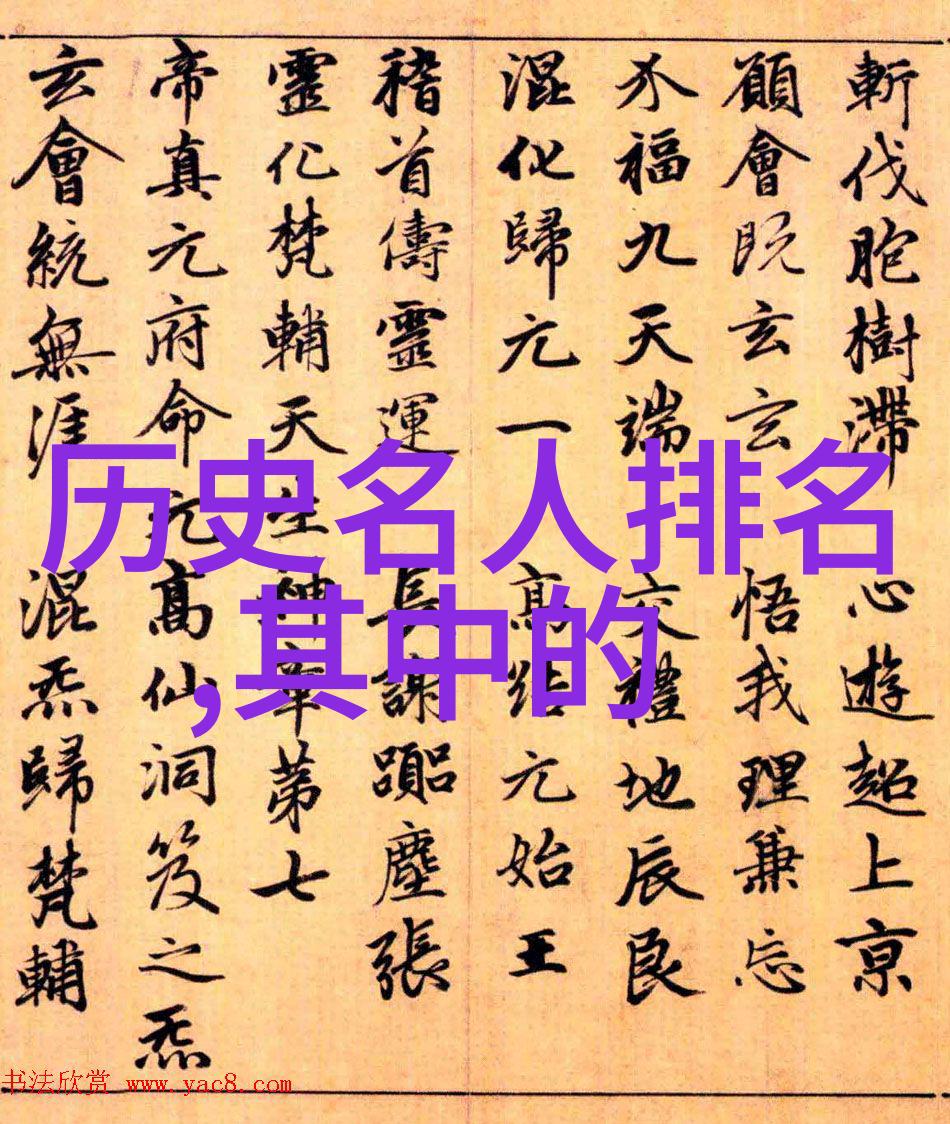 斬伐胞樹滯心遊超上京
願會既玄玄悟我理兼忘
介福九天端交禮地辰良
混化歸元一高結元始王
稽首儔靈運長謝躡塵張
靈化梵輔天生神章第七
帝真元府命元高仙洞笈之炁
玄會統無涯混炁歸梵輔
历史名人排名
,其中的
书法欣赏 www.yac8.com